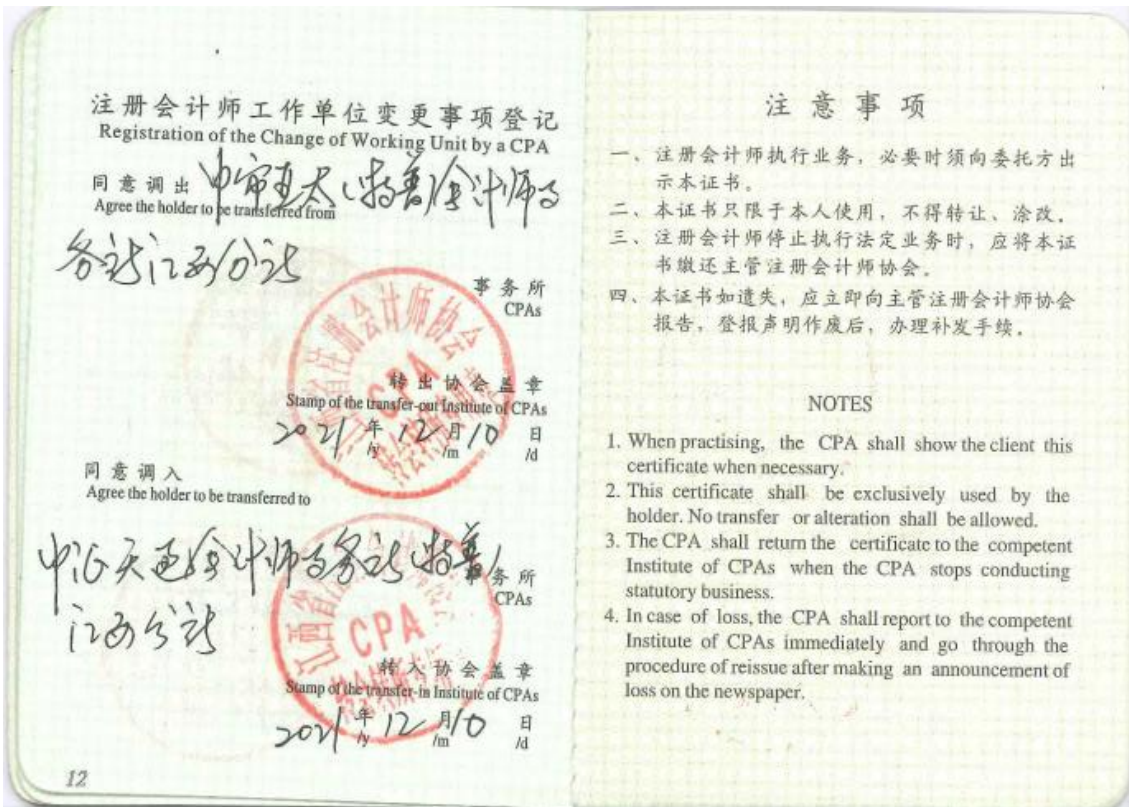 注册会计师工作单位变更事项登记
Registration of the Change of Working Unit by a CPA
同意调出 中审亚太(特普)会计师事
Agree the holder to be transferred from
务所江西分所
事务所
CPAs
江西省注册会计师协会
CPA
转出协会盖章
Stamp of the transfer-out Institute of CPAs
2021 年 12 月 10 日
/y /m /d
同意调入
Agree the holder to be transferred to
中证天通会计师事务所(特普)
事务所
CPAs
江西分所
江西省注
CPA
转入协会盖章
Stamp of the transfer-in Institute of CPAs
2021 年 12 月 10 日
/y /m /d
12
注意事项
一、注册会计师执行业务,必要时须向委托方出
示本证书。
二、本证书只限于本人使用,不得转让、涂改。
三、注册会计师停止执行法定业务时,应将本证
书缴还主管注册会计师协会。
四、本证书如遗失,应立即向主管注册会计师协会
报告,登报声明作废后,办理补发手续。
NOTES
1. When practising, the CPA shall show the client this
certificate when necessary.
2. This certificate shall be exclusively used by the
holder. No transfer or alteration shall be allowed.
3. The CPA shall return the certificate to the competent
Institute of CPAs when the CPA stops conducting
statutory business.
4. In case of loss, the CPA shall report to the competent
Institute of CPAs immediately and go through the
procedure of reissue after making an announcement of
loss on the newspaper.